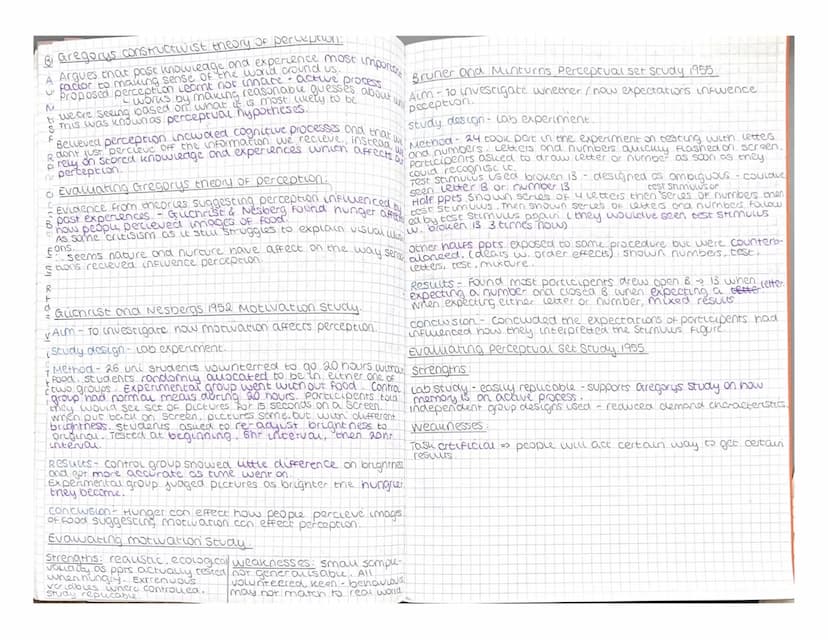 Gregorys constructivist theory of perception:
Argues that past knowledge and experience most important
factor to making sense of the world around us.
Proposed perception learnt not innate - active process
works by making reasonable guesses about what
we're seeing based on what it is most likely to be
This was known as perceptual hypotheses.
Believed perception included cognitive processes and that we
dont just percieve off the information we recieve, instead we
rely on stored knowledge and experiences which affects our
perception.
Evaluating Gregorys theory of perception:
Evidence from theories suggesting perception influenced by
past experiences - Gilchrist & Nesberg found hunger affects
how people percieved images of food.
As some critisism as it still struggles to explain visual
∴ seems nature and nurture have affect on the way
recieved influence perception.
Gilchrist and Nesbergs 1952 Motivation Study.
Aim - To investigate how motivation affects perception.
Study design - Lab experiment.
Method - 26 uni students volunterred to go 20 hours without
food. Students randomly allocated to be in either one of
two groups. Experimental group went without food. Control
group had normal meals during 20 hours. Participants told
they would see set of pictures for 15 seconds on a screen
when put back on screen, pictures same but with different
brightness. Students asked to re-adjust brightness to
original. Tested at beginning, 6hr interval, then 20hr
interval.
Results - Control group showed little difference on brightness
and got more accurate as time went on.
Experimental group judged pictures as brighter the hungrier
they become.
Conclusion - Hunger can effect how people percieve images
of food suggesting motivation can effect perception.
Evaluating motivation study
Strengths: realistic, ecological
validity as ppts actually tested
when hungry. Extrenuous
variables where controlled.
Study replicable.
Weaknesses: small sample -
not generalisable. All
volunteered, keen - behaviour
may not match to real world.
Bruner and Minturns Perceptual set study 1955
Aim - To investigate whether / how expectations influence
peception.
Study design - Lab experiment.
Method - 24 took part in the experiment on testing with letters
and numbers. Letters and numbers quickly flashed on screen.
Participants asked to draw letter or number as soon as they
could recognise it.
Test stimulus used broken 13 - designed as ambiguous - couldve
seen letter B or number 13
test stimulus or
Half ppts shown series of 4 letters then series of numbers then
test stimulus, then shown series of letters and numbers follow
ed by test stimulus again (they wouldve seen test stimulus
w. broken 13 3 times now)
Other halfs ppts exposed to same procedure but were counterb-
alanced, (deals w. order effects). shown numbers, test,
letters, test, mixture.
Results - Found most participants drew open B → 13 when
expecting a number and closed B when expecting a letter.
When expecting either letter or number, mixed results
Conclusion - Concluded the expectations of participants had
influenced how they interpreted the stimulus figure.
Evaluating Perceptual Set Study 1955
Strengths
Lab study - easily replicable - supports Gregorys study on how
memory is an active process.
Independent group designs used - reduced demand characteristics.
Weaknesses:
Task artificial ⇒ people will act certain way to get certain
results